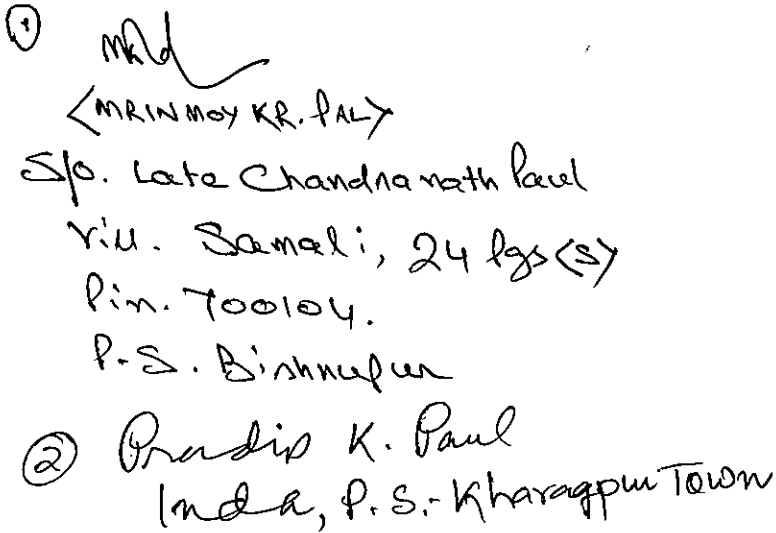 ①
(MRINMOY KR. PAL)
S/o. Late Chandranath Paul
Vill. Samali, 24 Pgs (S)
Pin. 700104.
P.S. Bishnupur
② Pradip K. Paul
Inda, P.S.- Kharagpur Town